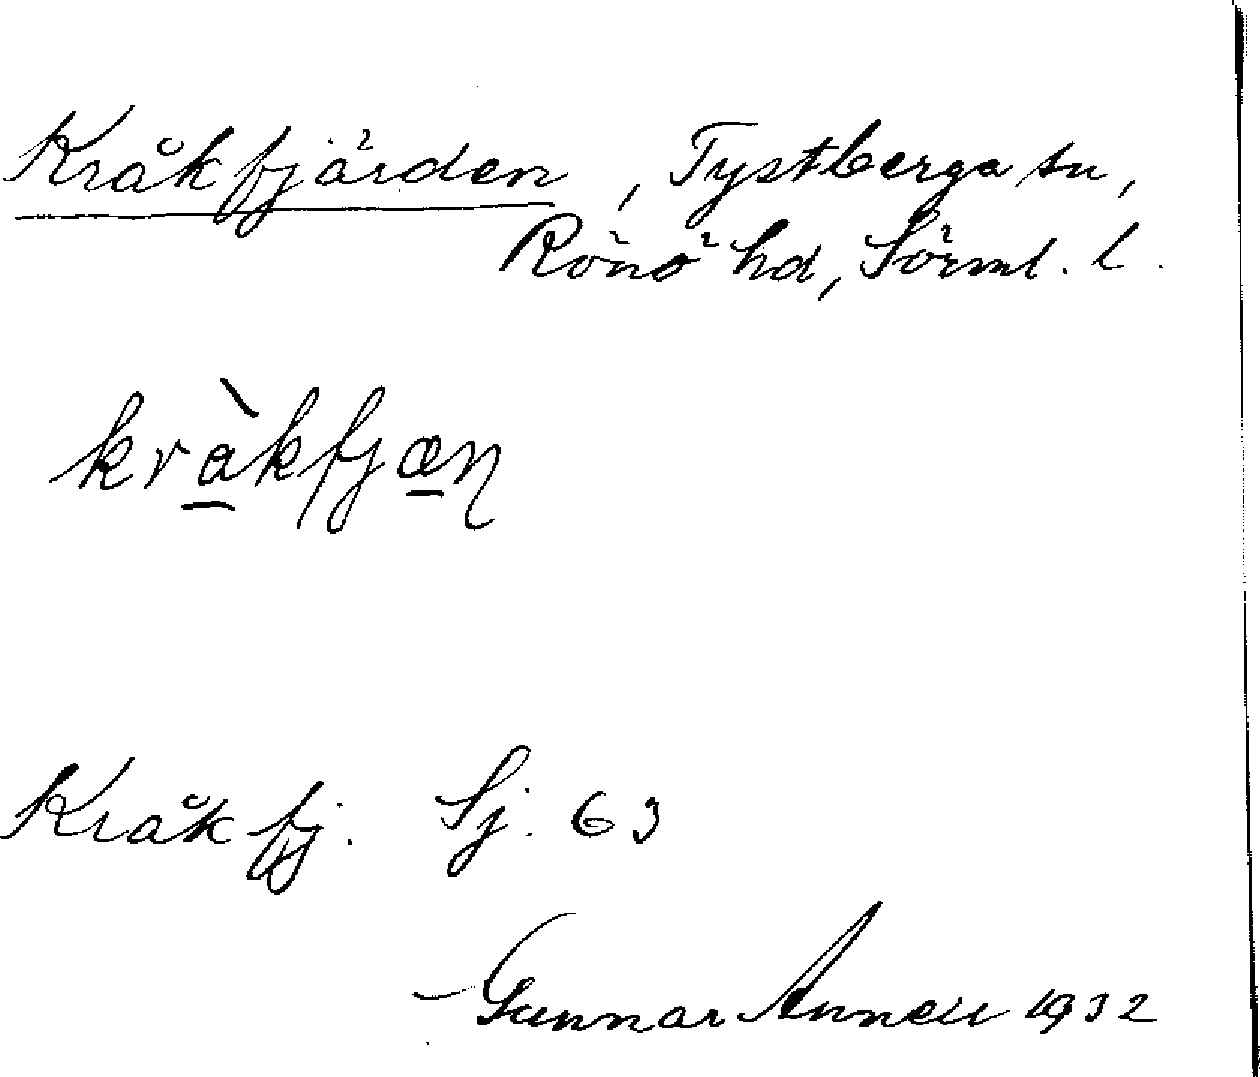 Kråkfjärden, Tystberga sn,
Rönö hd, Sörml. l.
kràkfjæn̥
Kråkfj. Sj. 63
Gunnar Annell 1932